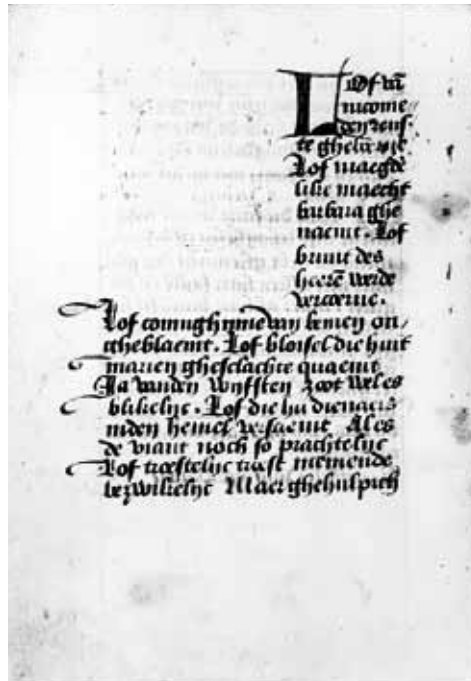 Lof vā
nicome
dey reus
te ghe
Lof maegde
lilie maecht
barbara ghe
naemt. Lof
bruut des
heerē werde
vercorne.
Lof coninghinne van lemen on
gheblaemt. Lof bloisel die huut
mauen gheslachte quaemt
Ja vanden wysten zoot wel es
blikelijc. Lof die hu dienaers
inden hemel versaemt Al es
de viant noch so prachtelijc
Lof troostelijc troost niemende
bezwikelijc Maer ghehulpich